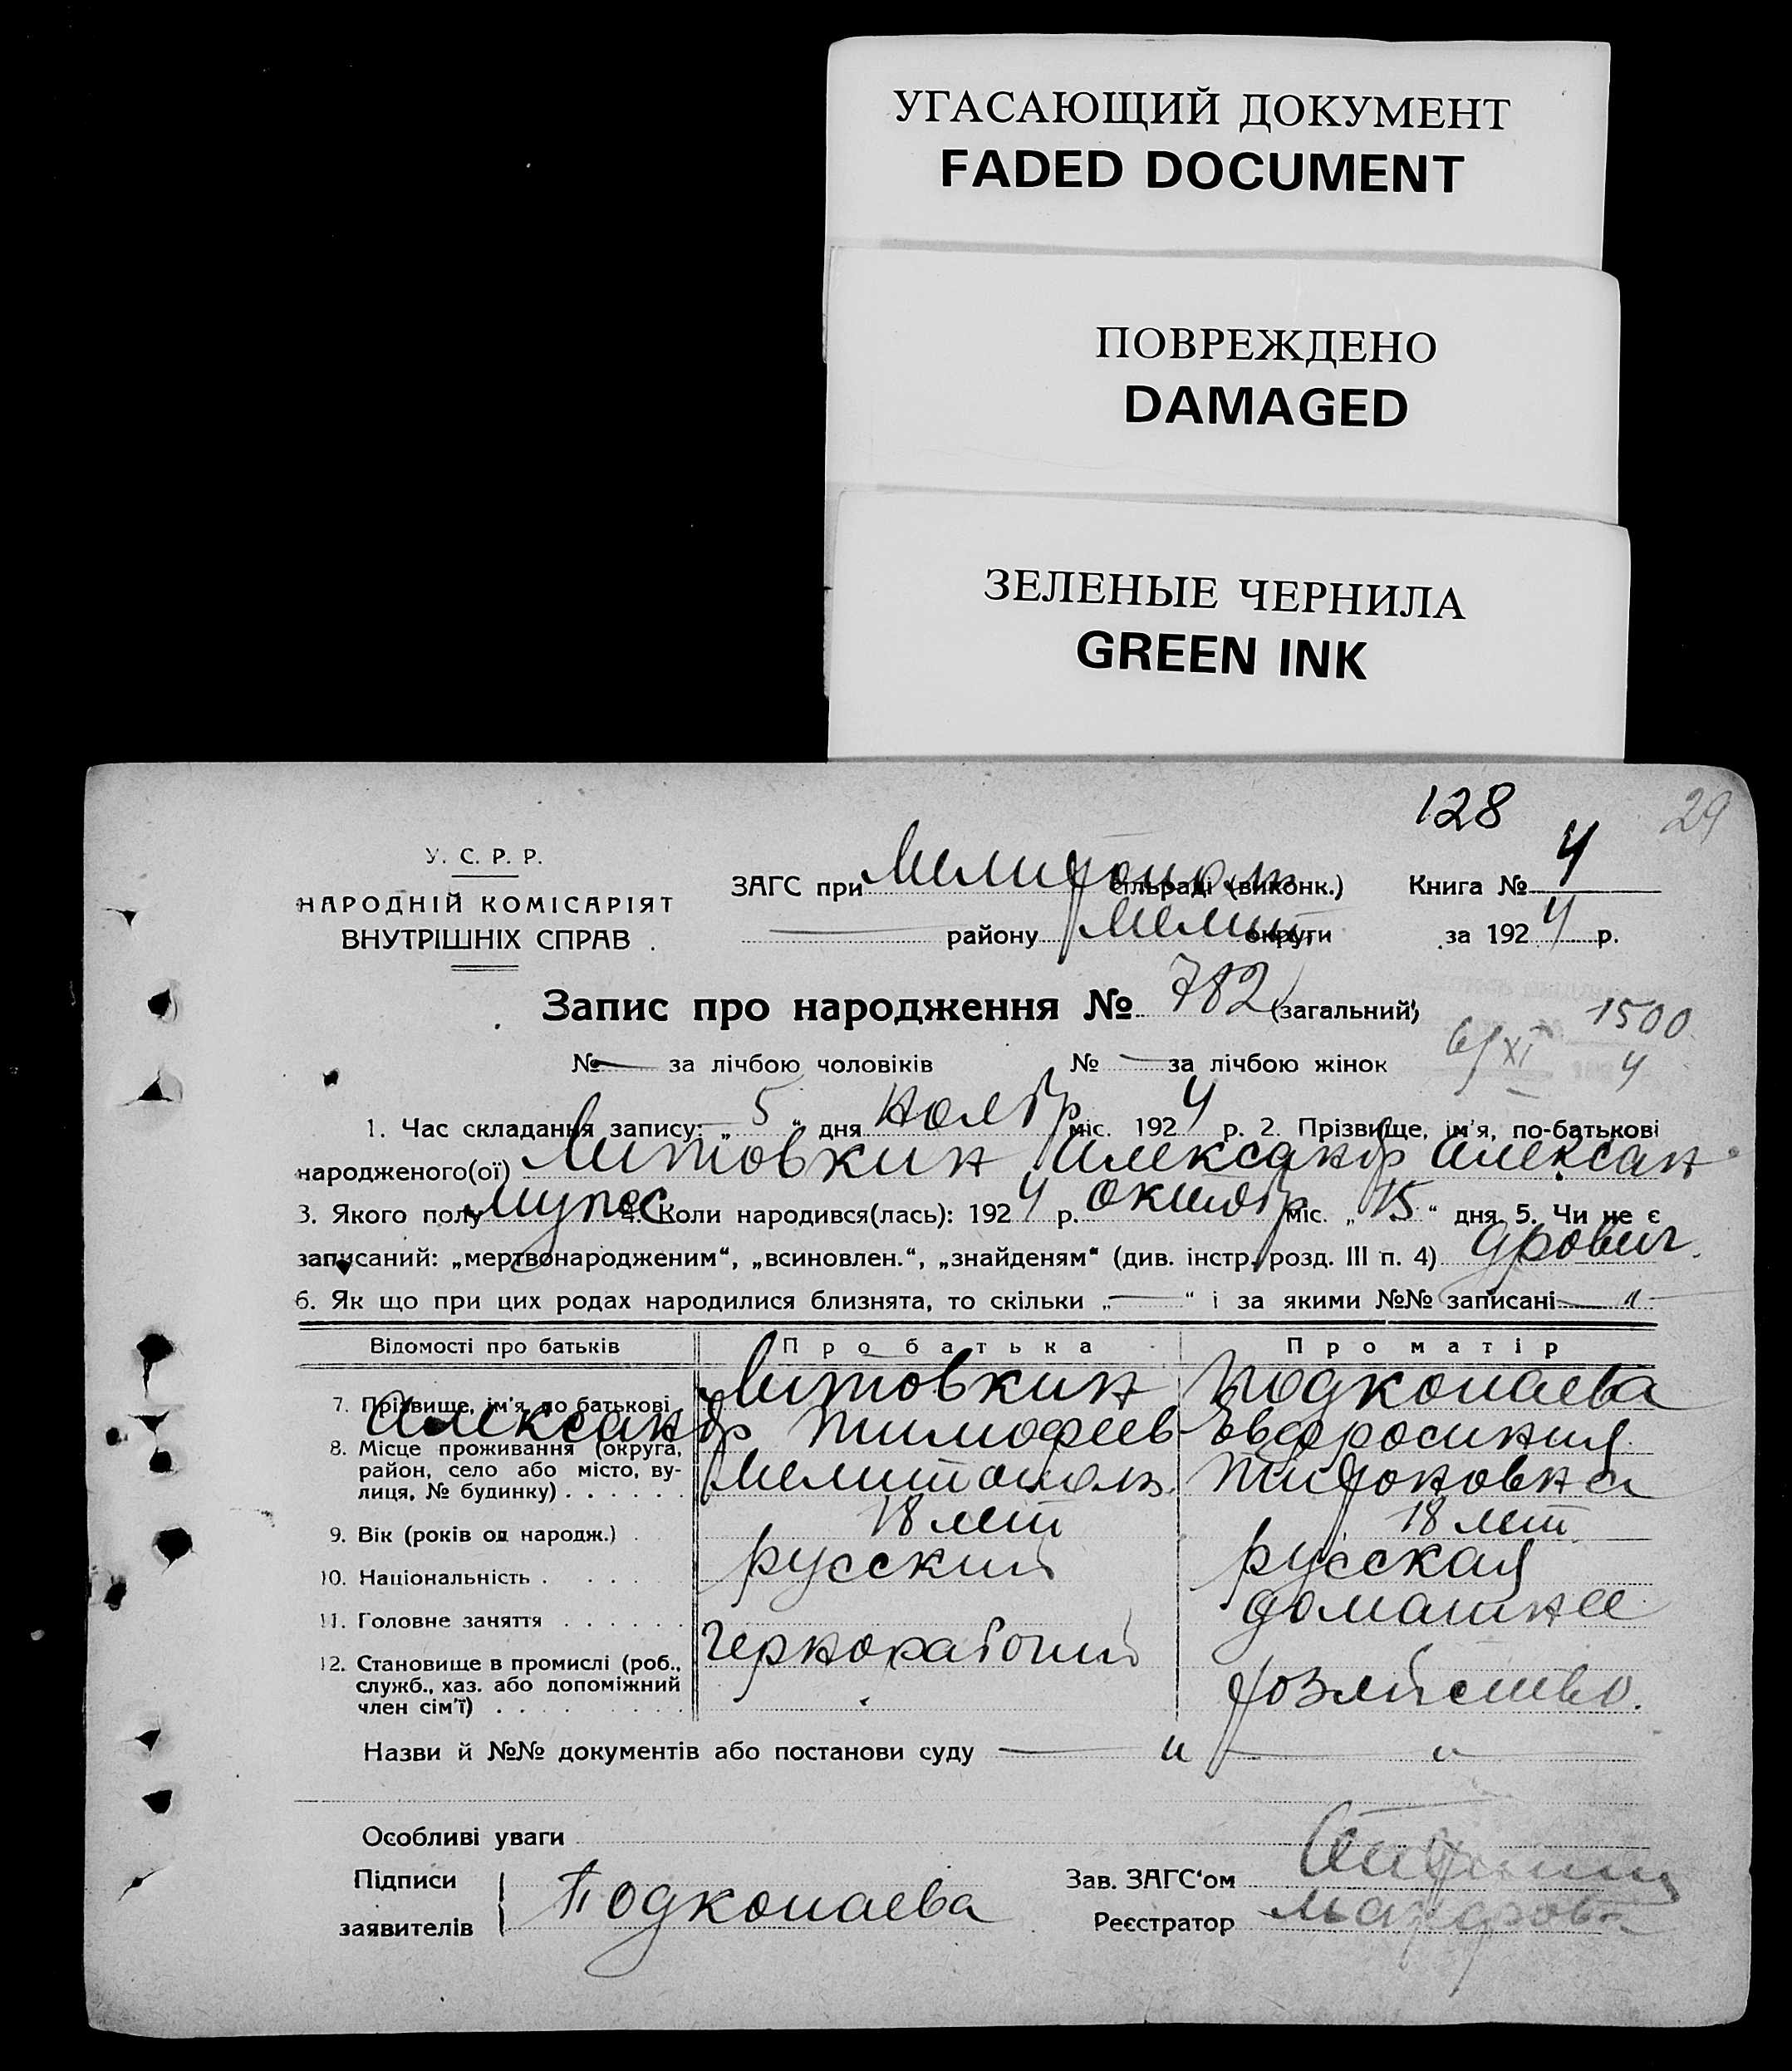 УГАСАЮЩИЙ ДОКУМЕНТ
FADED DOCUMENT
ПОВРЕЖДЕНО
DAMAGED
ЗЕЛЕНЫЕ ЧЕРНИЛА
GREEN INK
128 29
У. С. Р. Р.
НАРОДНІЙ КОМІСАРІЯТ
ВНУТРІШНІХ СПРАВ
ЗАГС при Мелитополь сільраді (виконк.) Книга № 4
району Мелит. округи за 1924 р.
Запис про народження № 782 (загальний)
1500
6/XI 4
№ — за лічбою чоловіків № — за лічбою жінок
1. Час складання запису: „5“ дня Ноябр міс. 1924 р. 2. Прізвище, ім'я, по-батькові
народженого(ої) Литовкин Александр Алексан
3. Якого полу мужес 4. Коли народився(лась): 1924 р. октябр міс. „15“ дня 5. Чи не є
записаний: „мертвонародженим“, „всиновлен.“, „знайденям“ (див. інстр. розд. III п. 4) дрович
6. Як що при цих родах народилися близнята, то скільки „—“ і за якими №№ записані — " —
Відомості про батьків Про батька Про матір
7. Прізвище, ім'я, по батькові Литовкин Подкопаева
Александр Тимофеев Евфросиния
8. Місце проживання (округа, район, село або місто, вулиця, № будинку) Мелитополь Тихоновна
9. Вік (років од народж.) 18 лет 18 лет
10. Національність русский русская
11. Головне заняття домашнее
12. Становище в промислі (роб., служб., хаз. або допоміжний член сім'ї) Чернорабочий хозяйство.
Назви й №№ документів або постанови суду — " — " —
Особливі уваги
Підписи
заявителів Подкопаева
Зав. ЗАГС'ом
Реєстратор